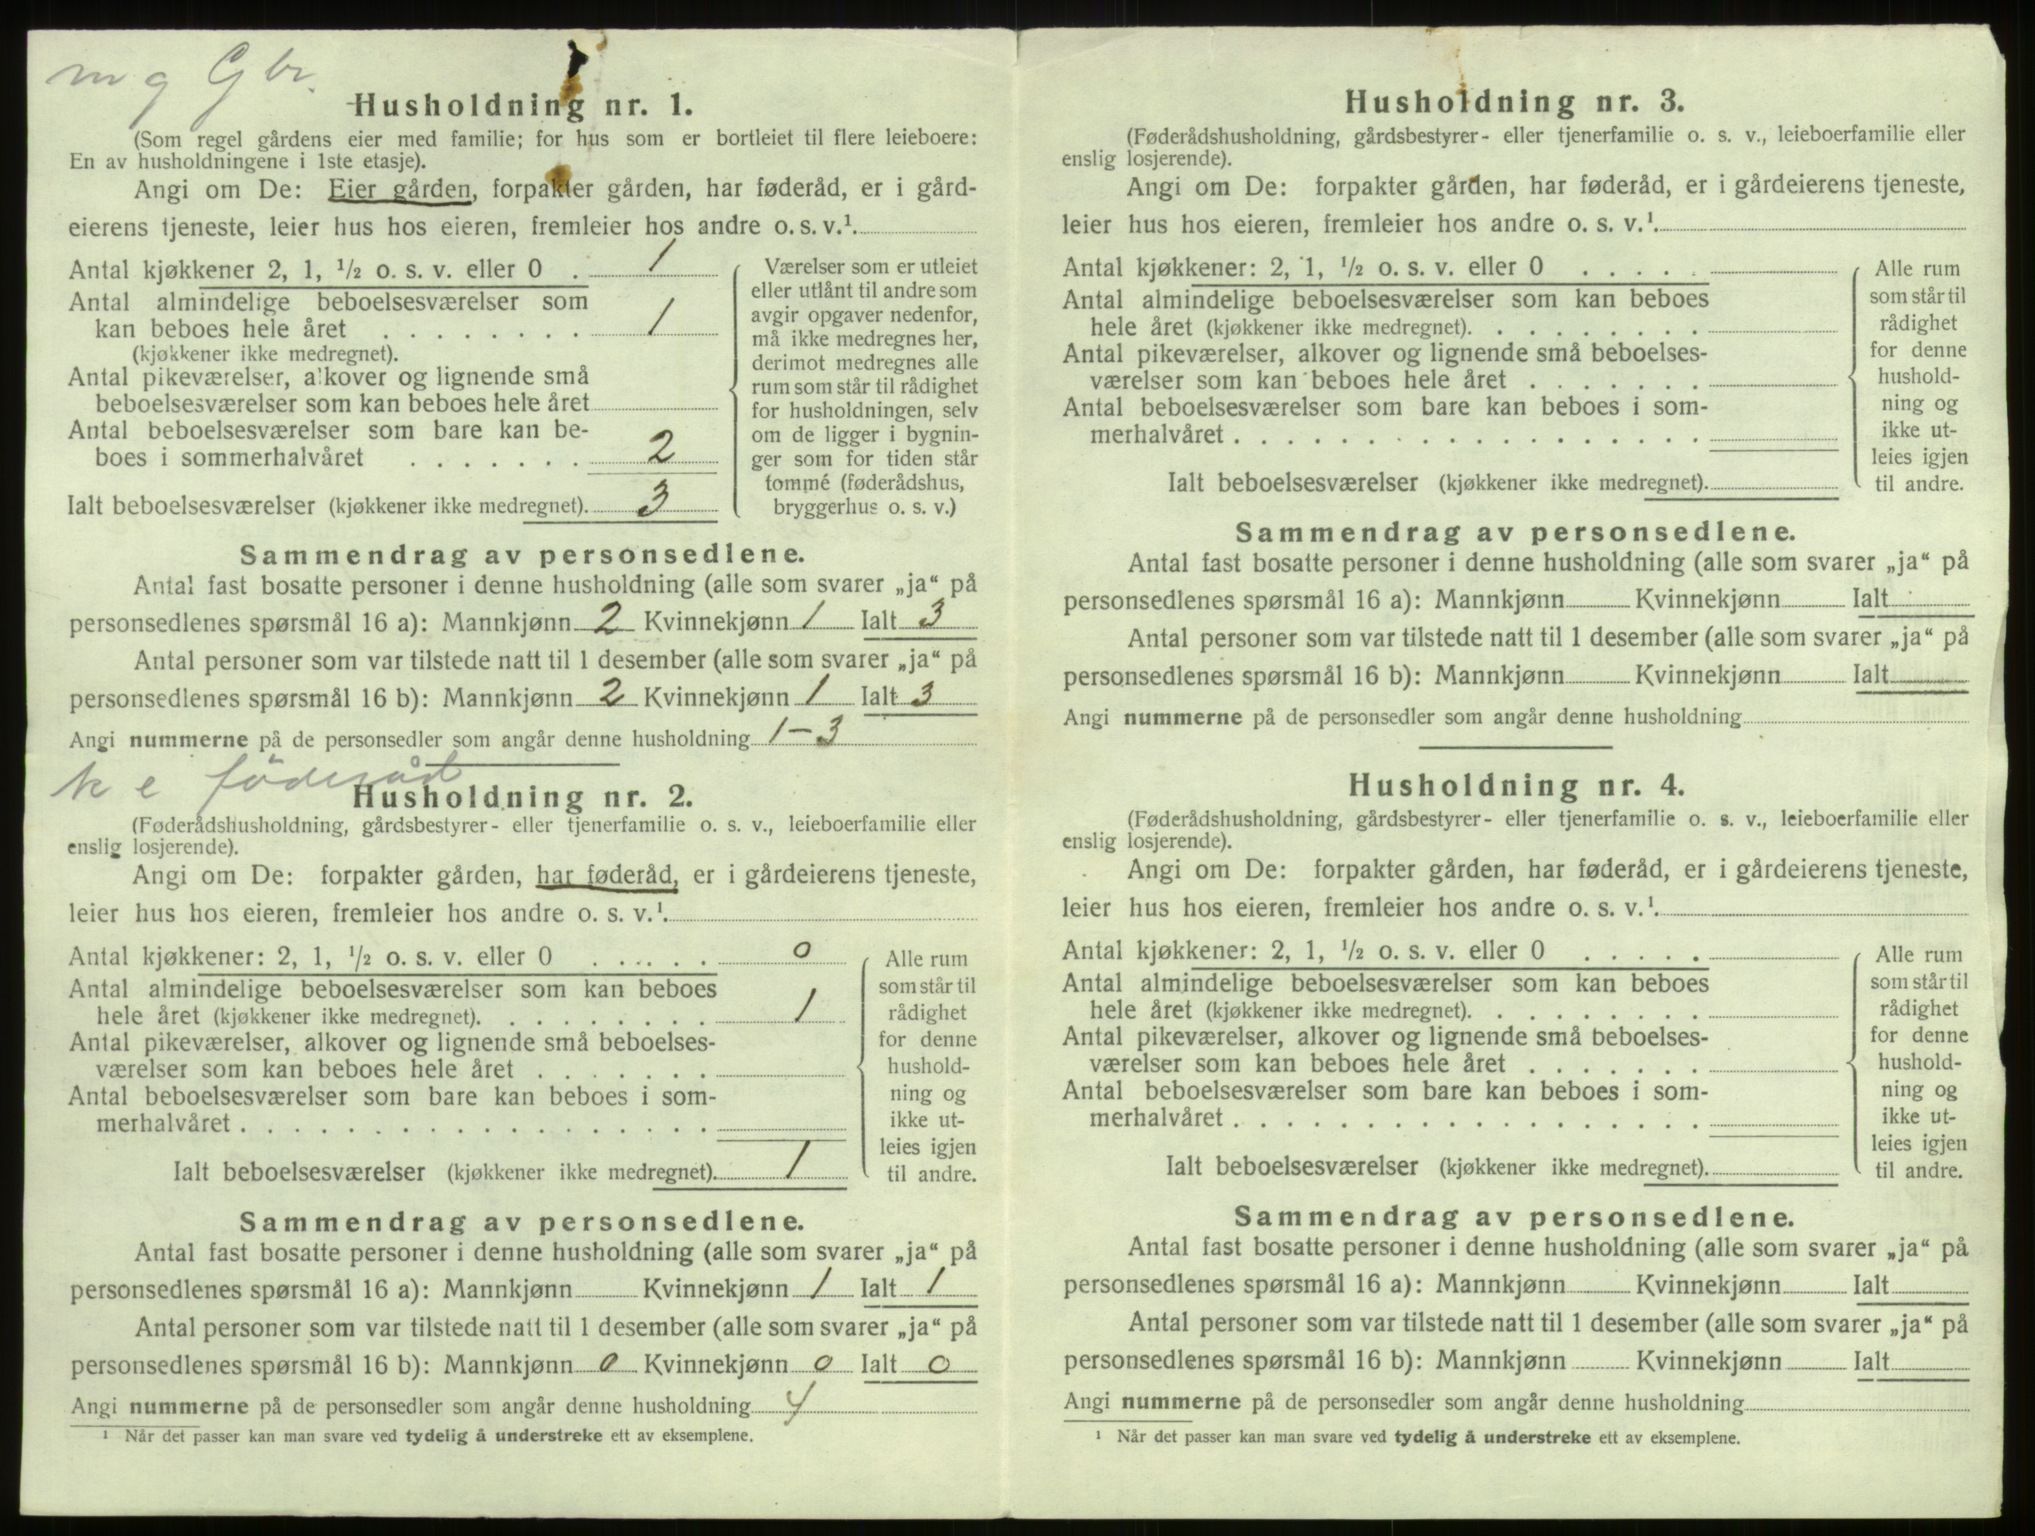 m g Gbr.
Husholdning nr. 1.
(Som regel gårdens eier med familie; for hus som er bortleiet til flere leieboere:
En av husholdningene i 1ste etasje).
Angi om De: Eier gården, forpakter gården, har føderåd, er i gård-
eierens tjeneste, leier hus hos eieren, fremleier hos andre o. s. v.¹.
Antal kjøkkener 2, 1, ½ o. s. v. eller 0 . 1
Antal almindelige beboelsesværelser som
kan beboes hele året . . . . . . . . 1
(kjøkkener ikke medregnet).
Antal pikeværelser, alkover og lignende små
beboelsesværelser som kan beboes hele året
Antal beboelsesværelser som bare kan be-
boes i sommerhalvåret . . . . . . . 2
Ialt beboelsesværelser (kjøkkener ikke medregnet). 3
Værelser som er utleiet
eller utlånt til andre som
avgir opgaver nedenfor,
må ikke medregnes her,
derimot medregnes alle
rum som står til rådighet
for husholdningen, selv
om de ligger i bygnin-
ger som for tiden står
tomme (føderådshus,
bryggerhus o. s. v.)
Sammendrag av personsedlene.
Antal fast bosatte personer i denne husholdning (alle som svarer „ja“ på
personsedlenes spørsmål 16 a): Mannkjønn 2 Kvinnekjønn 1 Ialt 3
Antal personer som var tilstede natt til 1 desember (alle som svarer „ja“ på
personsedlenes spørsmål 16 b): Mannkjønn 2 Kvinnekjønn 1 Ialt 3
Angi nummerne på de personsedler som angår denne husholdning 1 – 3
k e föderåd
Husholdning nr. 2.
(Føderådshusholdning, gårdsbestyrer- eller tjenerfamilie o. s. v., leieboerfamilie eller
enslig losjerende).
Angi om De: forpakter gården, har føderåd, er i gårdeierens tjeneste,
leier hus hos eieren, fremleier hos andre o. s. v.¹.
Antal kjøkkener: 2, 1, ½ o. s. v. eller 0 . . . . . 0
Antal almindelige beboelsesværelser som kan beboes
hele året (kjøkkener ikke medregnet). . . . . . . . . 1
Antal pikeværelser, alkover og lignende små beboelses-
værelser som kan beboes hele året . . . . . . .
Antal beboelsesværelser som bare kan beboes i som-
merhalvåret . . . . . . . . . . . . . . . . . .
Ialt beboelsesværelser (kjøkkener ikke medregnet). 1
Alle rum
som står til
rådighet
for denne
hushold-
ning og
ikke ut-
leies igjen
til andre.
Sammendrag av personsedlene.
Antal fast bosatte personer i denne husholdning (alle som svarer „ja“ på
personsedlenes spørsmål 16 a): Mannkjønn Kvinnekjønn 1 Ialt 1
Antal personer som var tilstede natt til 1 desember (alle som svarer „ja“ på
personsedlenes spørsmål 16 b): Mannkjønn 0 Kvinnekjønn 0 Ialt 0
Angi nummerne på de personsedler som angår denne husholdning 4
¹ Når det passer kan man svare ved tydelig å understreke ett av eksemplene.
Husholdning nr. 3.
(Føderådshusholdning, gårdsbestyrer- eller tjenerfamilie o. s. v., leieboerfamilie eller
enslig losjerende).
Angi om De: forpakter gården, har føderåd, er i gårdeierens tjeneste,
leier hus hos eieren, fremleier hos andre o. s. v.¹.
Antal kjøkkener: 2, 1, ½ o. s. v. eller 0 . . . . .
Antal almindelige beboelsesværelser som kan beboes
hele året (kjøkkener ikke medregnet). . . . . . . . .
Antal pikeværelser, alkover og lignende små beboelses-
værelser som kan beboes hele året . . . . . . .
Antal beboelsesværelser som bare kan beboes i som-
merhalvåret . . . . . . . . . . . . . . . . . .
Ialt beboelsesværelser (kjøkkener ikke medregnet).
Alle rum
som står til
rådighet
for denne
hushold-
ning og
ikke ut-
leies igjen
til andre.
Sammendrag av personsedlene.
Antal fast bosatte personer i denne husholdning (alle som svarer „ja“ på
personsedlenes spørsmål 16 a): Mannkjønn Kvinnekjønn Ialt
Antal personer som var tilstede natt til 1 desember (alle som svarer „ja“ på
personsedlenes spørsmål 16 b): Mannkjønn Kvinnekjønn Ialt
Angi nummerne på de personsedler som angår denne husholdning
Husholdning nr. 4.
(Føderådshusholdning, gårdsbestyrer- eller tjenerfamilie o. s. v., leieboerfamilie eller
enslig losjerende).
Angi om De: forpakter gården, har føderåd, er i gårdeierens tjeneste,
leier hus hos eieren, fremleier hos andre o. s. v.¹.
Antal kjøkkener: 2, 1, ½ o. s. v. eller 0 . . . . .
Antal almindelige beboelsesværelser som kan beboes
hele året (kjøkkener ikke medregnet). . . . . . . . .
Antal pikeværelser, alkover og lignende små beboelses-
værelser som kan beboes hele året . . . . . . .
Antal beboelsesværelser som bare kan beboes i som-
merhalvåret . . . . . . . . . . . . . . . . . .
Ialt beboelsesværelser (kjøkkener ikke medregnet).
Alle rum
som står til
rådighet
for denne
hushold-
ning og
ikke ut-
leies igjen
til andre.
Sammendrag av personsedlene.
Antal fast bosatte personer i denne husholdning (alle som svarer „ja“ på
personsedlenes spørsmål 16 a): Mannkjønn Kvinnekjønn Ialt
Antal personer som var tilstede natt til 1 desember (alle som svarer „ja“ på
personsedlenes spørsmål 16 b): Mannkjønn Kvinnekjønn Ialt
Angi nummerne på de personsedler som angår denne husholdning
¹ Når det passer kan man svare ved tydelig å understreke ett av eksemplene.